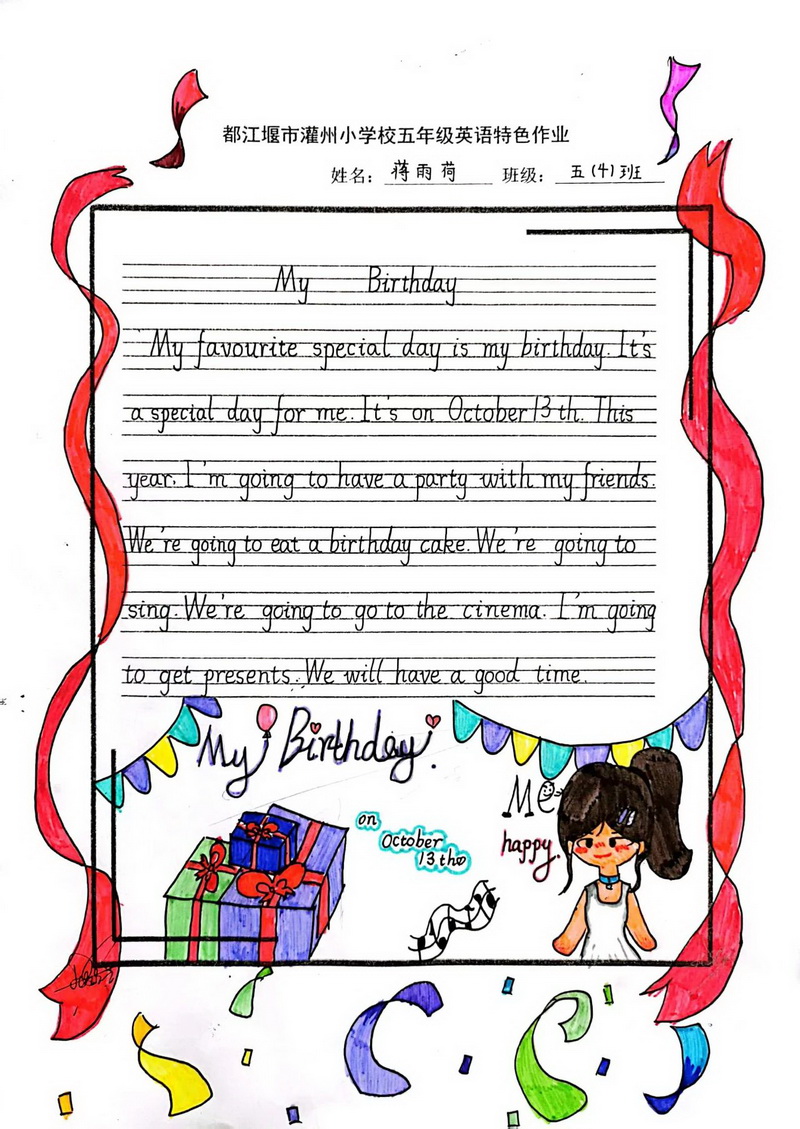 都江堰市灌州小学校五年级英语特色作业
姓名: 蒋雨荷 班级: 五(4)班
My Birthday
My favourite special day is my birthday. It's
a special day for me. It's on October 13th. This
year. I'm going to have a party with my friends.
We're going to eat a birthday cake. We're going to
sing. We're going to go to the cinema. I'm going
to get presents. We will have a good time.
My Birthday.
Me
happy.
on
October
13th